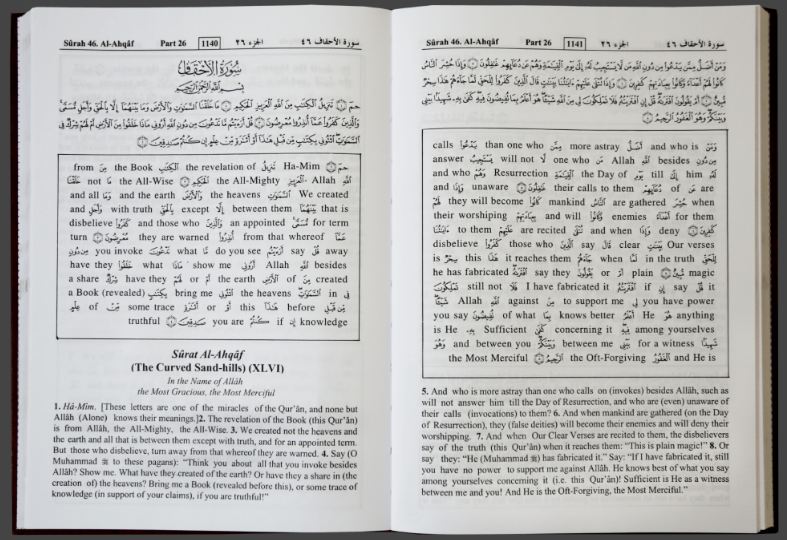 Sûrah 46. Al-Ahqâf Part 26 1140 الجزء ٢٦ سورة الأحقاف ٤٦
سورة الأحقاف
بسم الله الرحمن الرحيم
from من the Book الكتب the revelation of تنزيل Ha-Mim حم
not ما the All-Wise الحكيم the All-Mighty العزيز Allah الله
and all وما and the earth والأرض the heavens السموت We created
and وأجل with truth بالحق except إلا between them بينهما that is
disbelieve كفروا and those who والذين an appointed مسمى for term
turn معرضون they are warned أنذروا from that whereof عما
you invoke تدعون what ما do you see أرءيتم say قل away
have they خلقوا what ماذا show me أروني Allah الله besides
a share شرك have they لهم or أم the earth الأرض of من created
a Book (revealed) بكتب bring me ائتوني the heavens السموت in في
of من some trace أثرة or أو this هذا before قبل
truthful صدقين you are كنتم if إن knowledge
Sûrat Al-Ahqâf
(The Curved Sand-hills) (XLVI)
In the Name of Allâh
the Most Gracious, the Most Merciful
1. Hâ-Mîm. [These letters are one of the miracles of the Qur'ân, and none but
Allâh (Alone) knows their meanings.]2. The revelation of the Book (this Qur'ân)
is from Allâh, the All-Mighty, the All-Wise. 3. We created not the heavens and
the earth and all that is between them except with truth, and for an appointed term.
But those who disbelieve, turn away from that whereof they are warned. 4. Say (O
Muhammad ﷺ to these pagans): "Think you about all that you invoke besides
Allâh? Show me. What have they created of the earth? Or have they a share in (the
creation of) the heavens? Bring me a Book (revealed before this), or some trace of
knowledge (in support of your claims), if you are truthful!"
Sûrah 46. Al-Ahqâf Part 26 1141 الجزء ٢٦ سورة الأحقاف ٤٦
calls يدعوا than one who ممن more astray أضل and who is ومن
answer يستجيب will not لا one who من Allah الله besides من دون
and who وهم Resurrection القيمة the Day of يوم till إلى him له
and وإذا unaware غفلون their calls to them دعائهم of عن are
they will become كانوا mankind الناس are gathered حشر when
their worshiping بعبادتهم and will وكانوا enemies أعداء for them لهم
to them عليهم are recited تتلى and when وإذا deny كفرين
disbelieve كفروا those who الذين say قال clear بينت Our verses
is سحر this هذا it reaches them جاءهم when لما in the truth للحق
he has fabricated it افتراه say they يقولون or أم plain مبين magic
still not فلا I have fabricated it افتريته if إن say قل it
Allah الله against من to support me لي you have power
you say تفيضون of what بما knows better أعلم He هو anything شيئا
is He به Sufficient كفى concerning it فيه among yourselves
and وهو and between you وبينكم between me بيني for a witness شهيدا
the Most Merciful الرحيم the Oft-Forgiving الغفور and He is
5. And who is more astray than one who calls on (invokes) besides Allâh, such as
will not answer him till the Day of Resurrection, and who are (even) unaware of
their calls (invocations) to them? 6. And when mankind are gathered (on the Day
of Resurrection), they (false deities) will become their enemies and will deny their
worshipping. 7. And when Our Clear Verses are recited to them, the disbelievers
say of the truth (this Qur'ân) when it reaches them: "This is plain magic!" 8. Or
say they: "He (Muhammad ﷺ) has fabricated it." Say: "If I have fabricated it, still
you have no power to support me against Allâh. He knows best of what you say
among yourselves concerning it (i.e. this Qur'ân)! Sufficient is He as a witness
between me and you! And He is the Oft-Forgiving, the Most Merciful."